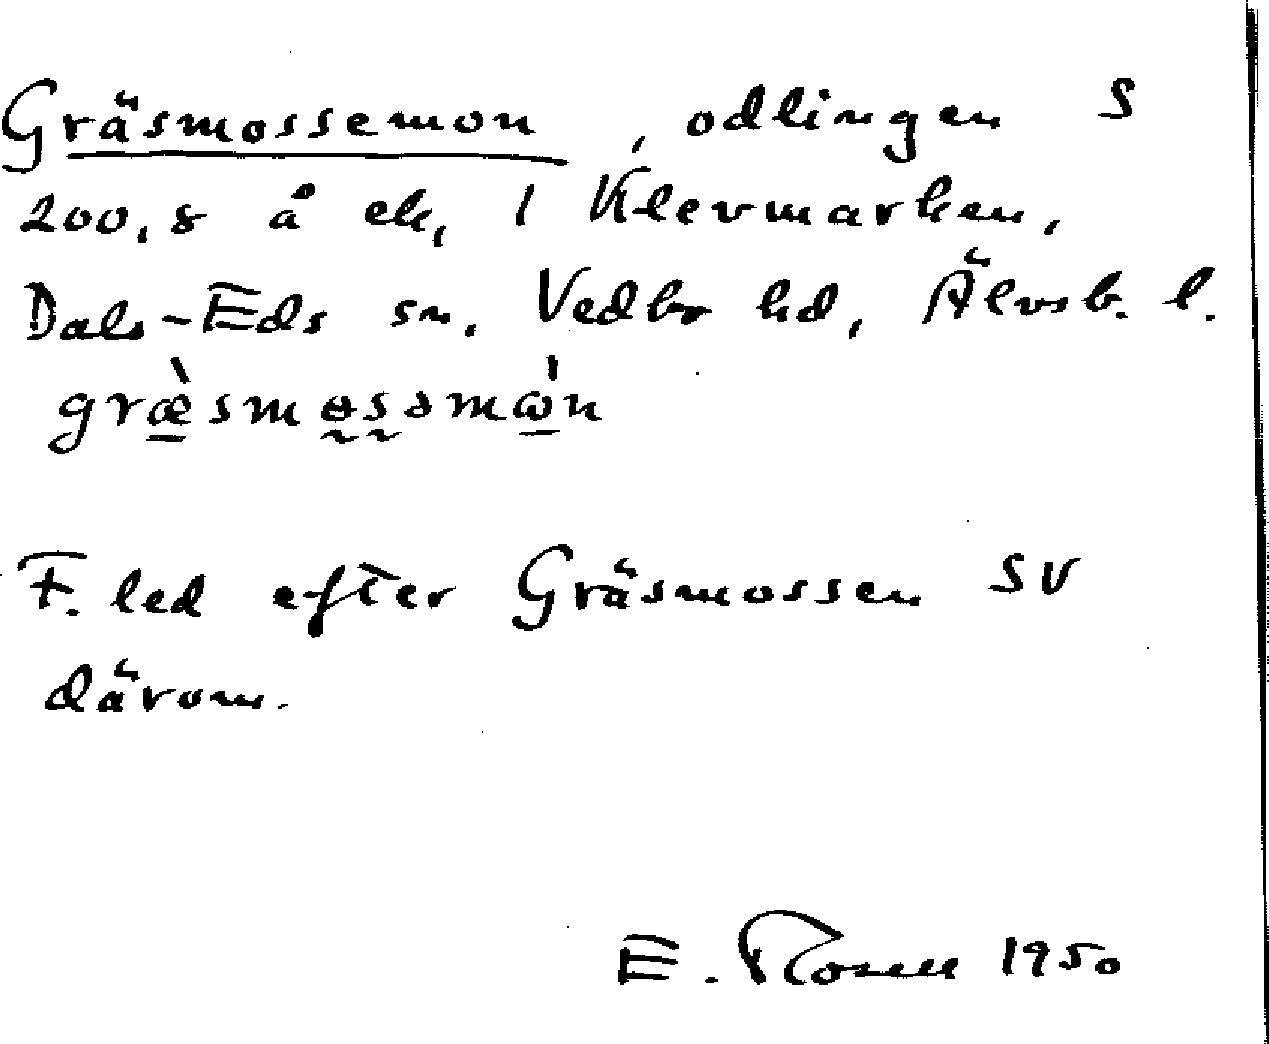 Gräsmossemon, odlingen S
200,8 å ek, 1 Klevmarken,
Dals-Eds sn, Vedbo hd, Älvsb. l.
græ̀smɵsəmω̍n
F. led efter Gräsmossen SV
därom.
E. Rosell 1950